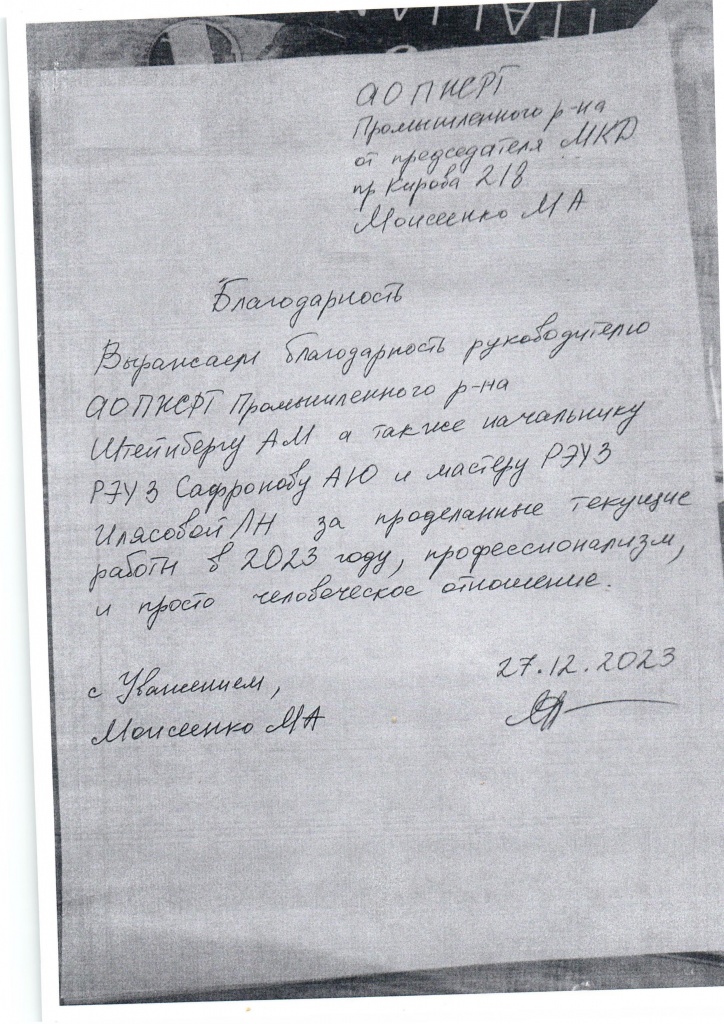 ITALIAN
АО ПЖРТ
Промышленного р-на
от председателя МКД
пр Кирова 218
Моисеенко МА
Благодарность
Выражаем благодарность руководителю
АО ПЖРТ Промышленного р-на
Штейнбергу АМ а также начальнику
РЭУ 3 Сафронову АЮ и мастеру РЭУ 3
Илясовой ЛН за проделанные текущие
работы в 2023 году, профессионализм,
и просто человеческое отношение.
с Уважением,
27.12.2023
Моисеенко МА